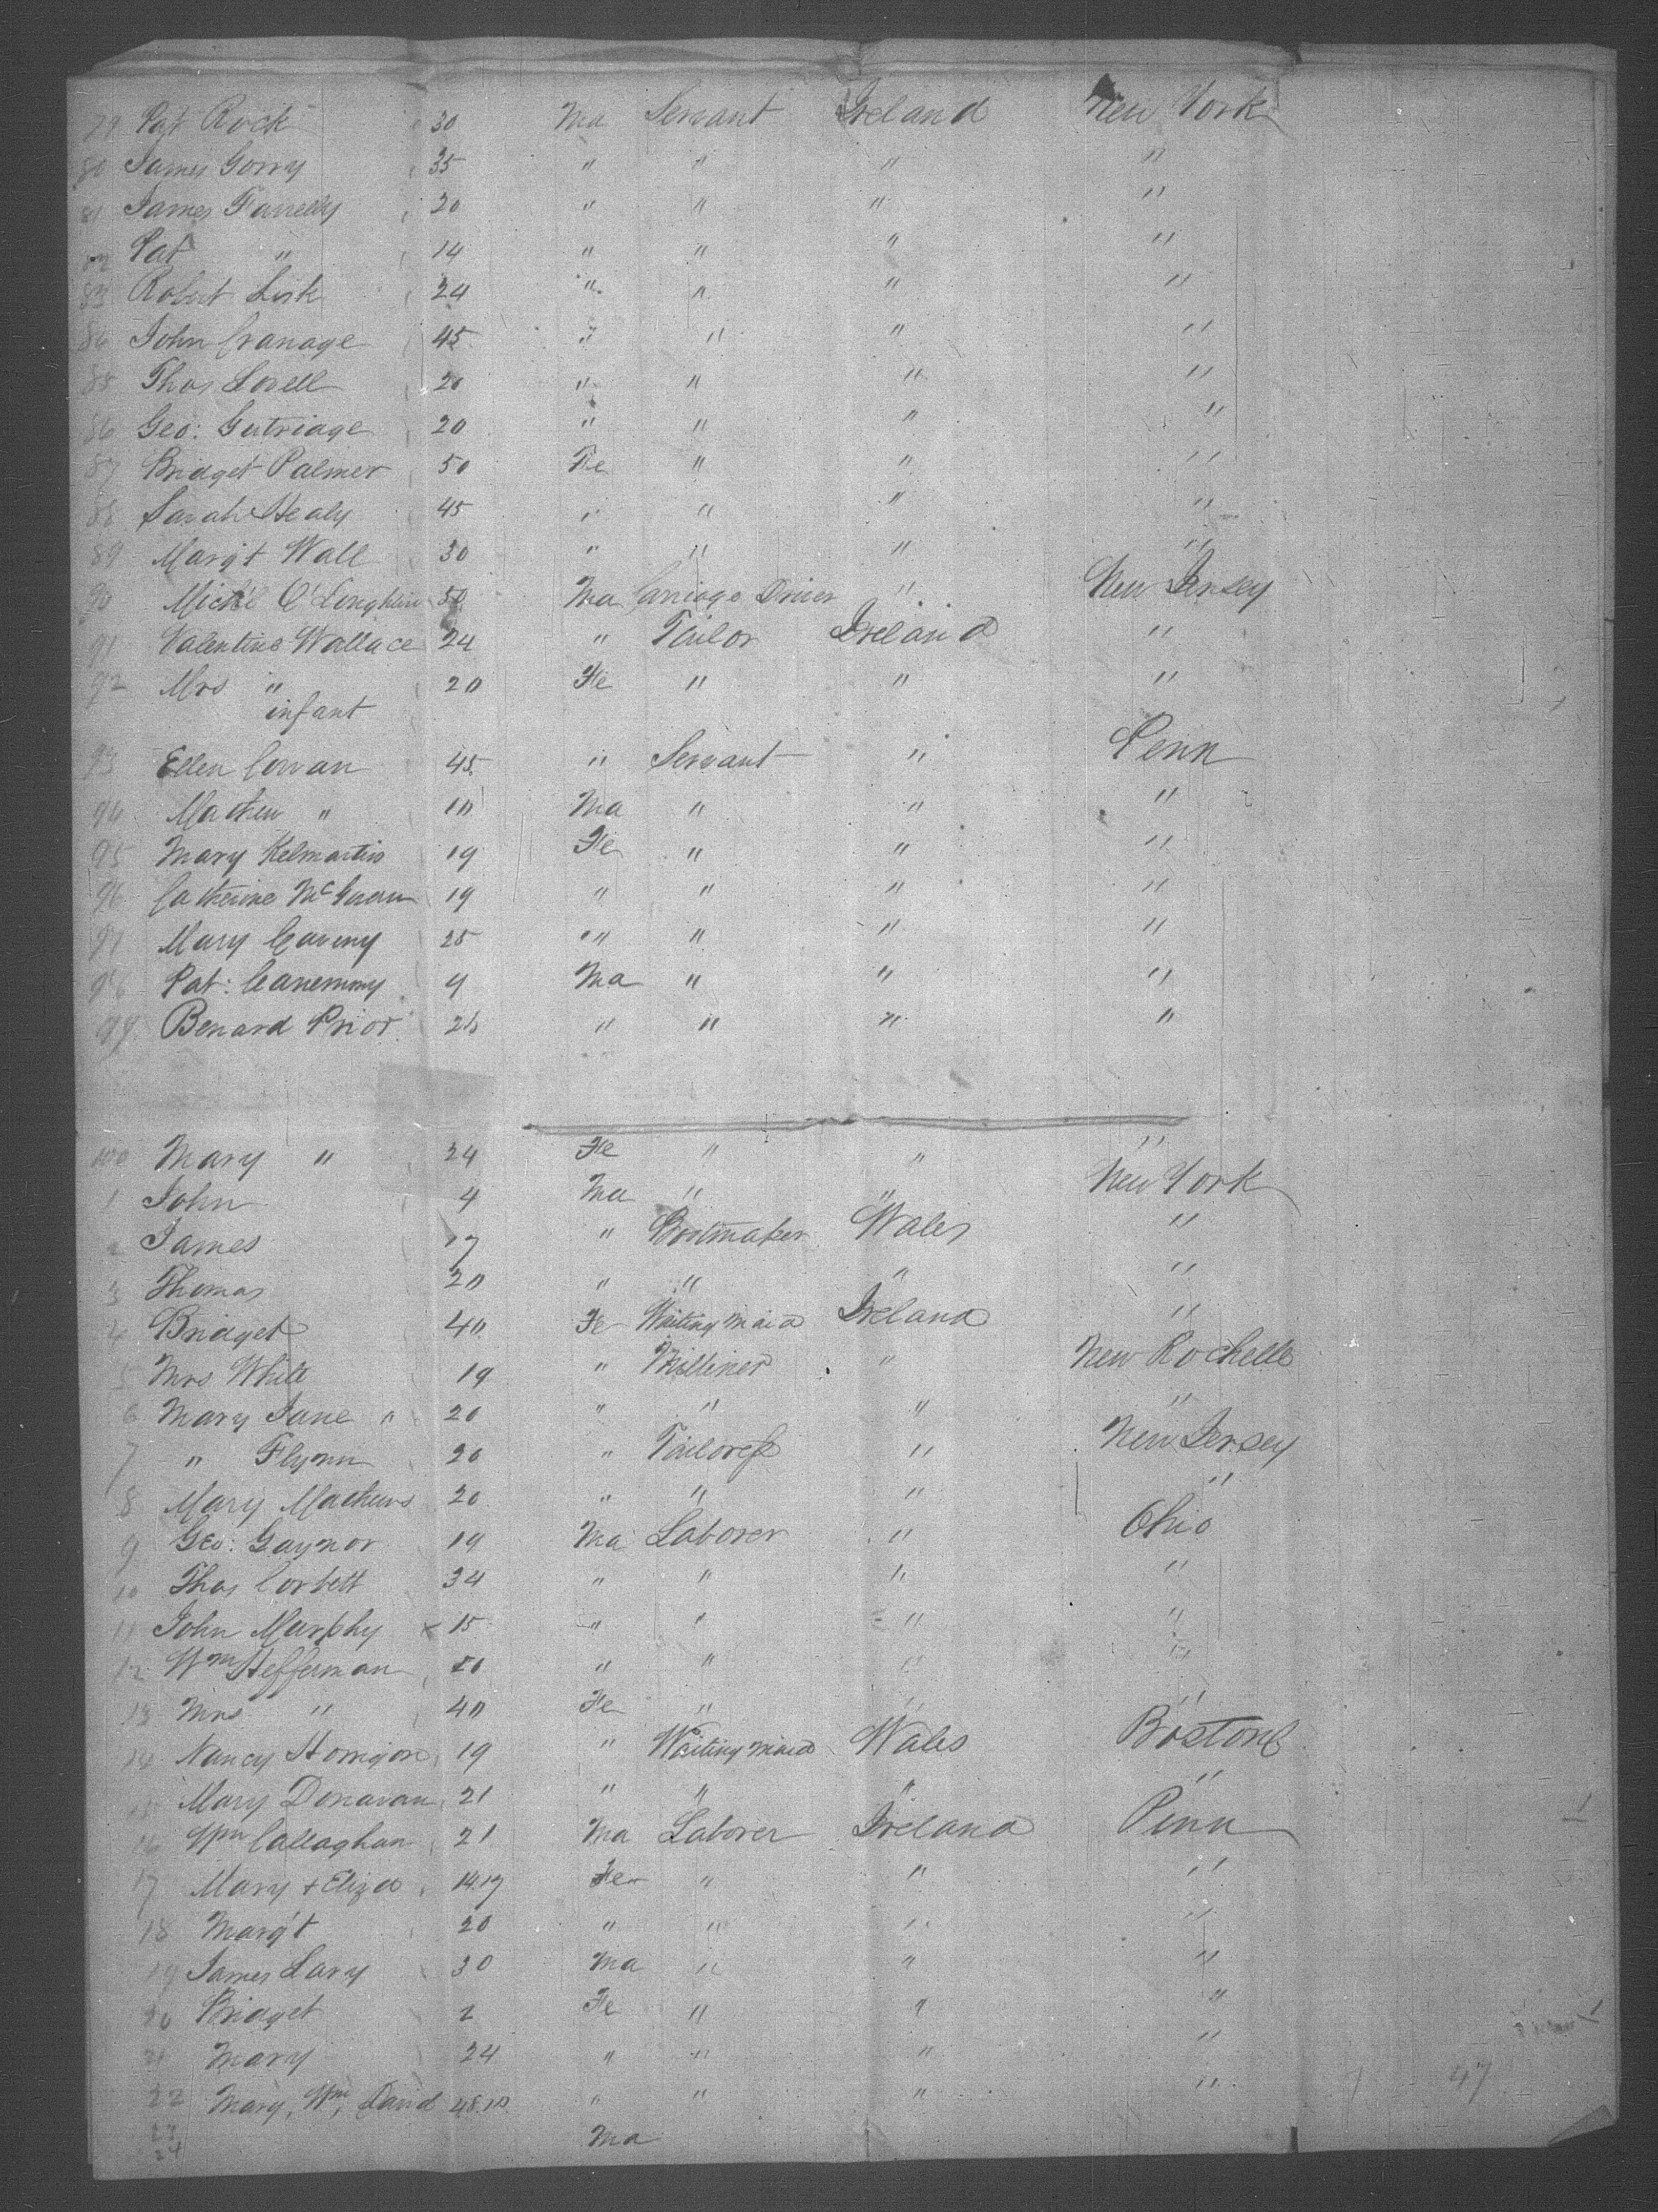 79 Pat Rock 30 Ma Servant Ireland New York
80 James Gorry 35 " " " "
81 James Farrelly 20 " " " "
82 Pat " 14 " " " "
83 Robert Lisk 24 " " " "
84 John Cranage 45 " " " "
85 Thos Lovell 20 " " " "
86 Geo: Gutriage 20 " " " "
87 Bridget Palmer 50 Fe " " "
88 Sarah Healy 45 " " " "
89 Margt Wall 30 " " " "
90 Michl O'Loughlin 50 Ma Carriage Driver " New Jersey
91 Valentine Wallace 24 " Tailor Ireland "
92 Mrs " 20 Fe " " "
infant
93 Ellen Cowan 45 " Servant " Penn
94 Mathew " 10 Ma " " "
95 Mary Kelmartin 19 Fe " " "
96 Catherine 19 " " " "
97 Mary 25 " " " "
98 Pat: 9 Ma " " "
99 Benard Prior 26 " " " "
100 Mary " 24 Fe " " "
1 John 4 Ma " " New York
2 James 17 " Bootmaker Wales "
3 Thomas 20 " " " "
4 Bridget 40 Fe Waiting maid Ireland "
5 Mrs White 19 " Milliner " New Rochelle
6 Mary Jane " 20 " " " "
7 " Flynn 20 " Tailoress " New Jersey
8 Mary Mathews 20 " " " "
9 Geo: Gaynor 19 Ma Laborer " Ohio
10 Thos Corbett 34 " " " "
11 John Murphy x 15 " " " "
12 Wm Hefferman 50 " " " "
13 Mrs " 40 Fe " " "
14 Nancy 19 " Waiting maid Wales Boston
15 Mary Donavan 21 " " " "
16 Wm Callaghan 21 Ma Laborer Ireland Penn
17 Mary + Eliza 14.17 Fe " " "
18 Margt 20 " " " "
19 James Lary 30 Ma " " "
20 Bridget 2 Fe " " "
21 Mary 24 " " " "
22 Mary, Wm, David 4.8.10 " " " " 47
23 Ma
24